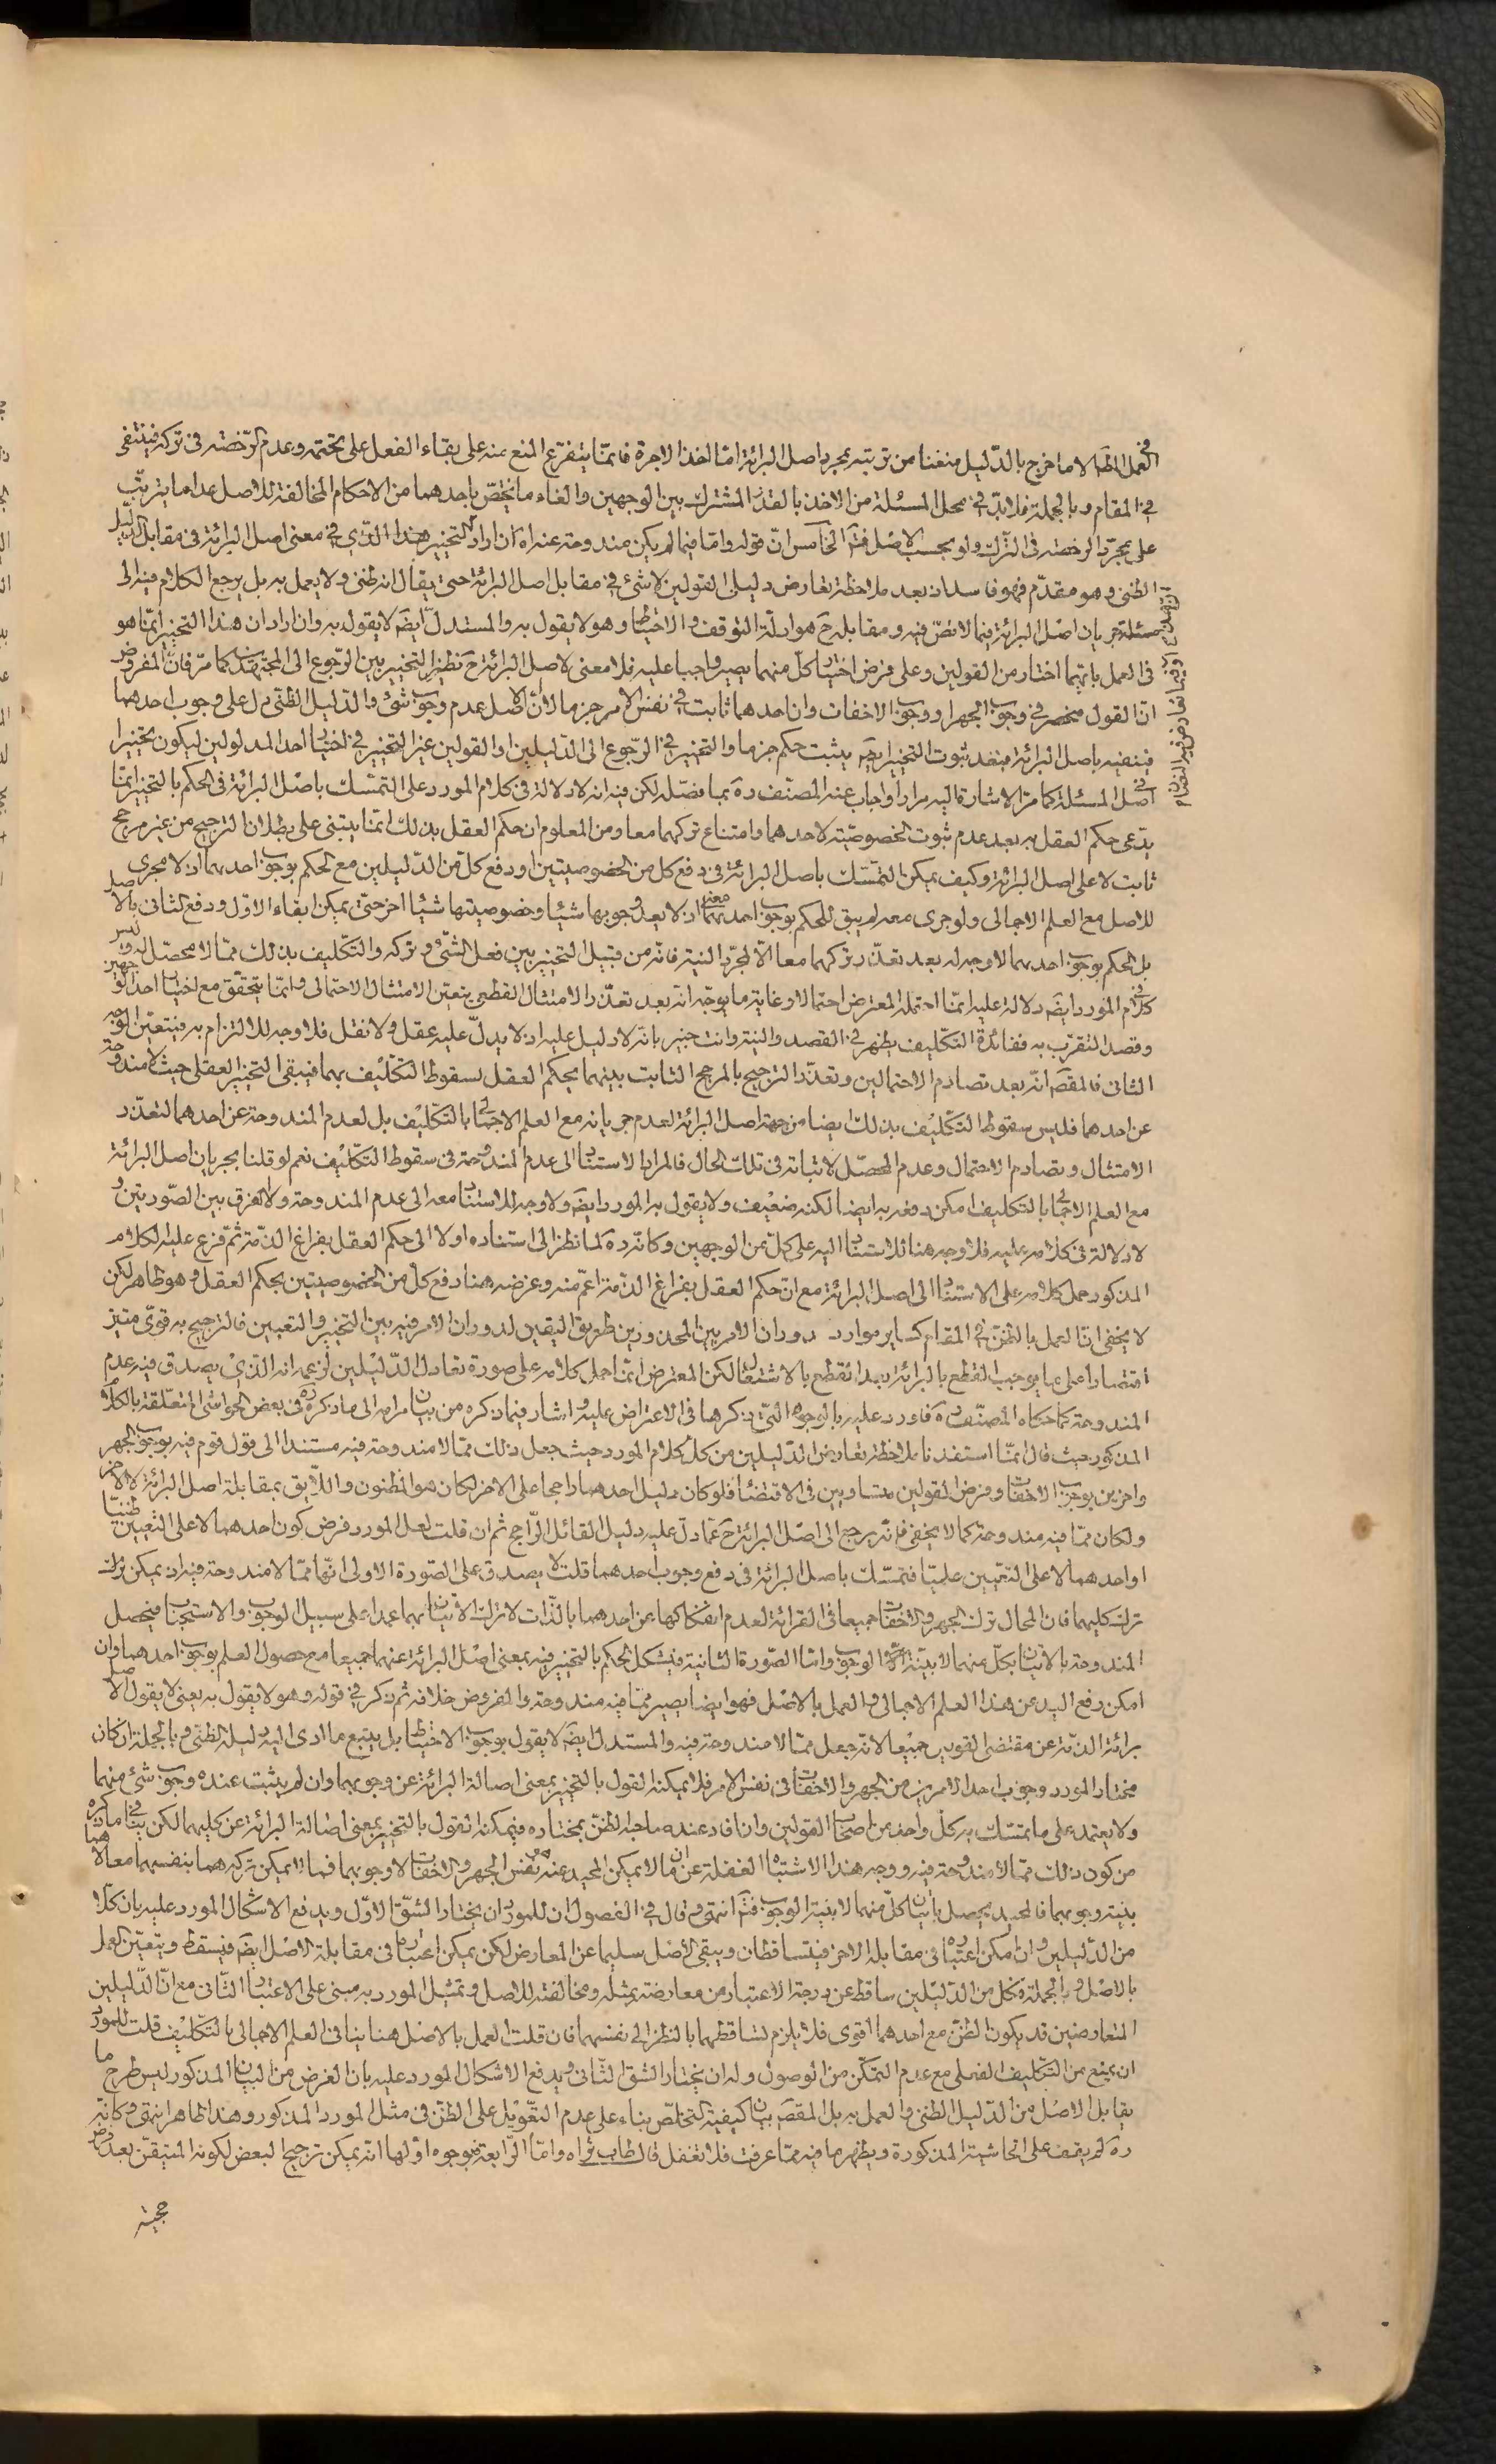 في العمل الظهر الا ما خرج بالدّليل منعنا من ترتبه بمجرد اصل البرائة امّا اخذ الاجرة فانّما يتفرّع المنع منه على بقاء الفعل على تحتمه وعدم الرّخصة في تركه فينتفى
في المقام وبالجملة فلا بدّ في محل المسئلة من الاخذ بالقدر المشترك بين الوجهين والغاء ما يختصّ باحدهما من الاحكام المخالفة للاصل عدا ما يترتّب
على مجرّد الرخصة في الترك ولو بحسب الاصل فتم الخامس انّ قوله وامّا فيما لم يكن مندوحة عنه اه ان اراد بالتخيير هذا الذي في معنى اصل البرائة في مقابل الدّليل
الظنى وهو مقدّم فهو فاسد اذ بعد ملاحظة تعارض دليلى القولين لا شئ في مقابل اصل البرائة حتى يقال انه ظنى ولا يعمل به بل يرجع الكلام فيه الى
مسئلة جريان اصل البرائة فيما لا نصّ فيه ومقابله ح هو ادلّة التوقف والاحتياط وهو لا يقول به والمستدلّ ايضَ لا يقول به وان اراد ان هذا التخيير انّما هو
في العمل بايّهما اختار من القولين وعلى فرض اختيار كلّ منهما يصير واجبا عليه فلا معنى لاصل البرائة ح نظير التخيير بين الرّجوع الى المجتهدين كما مرّ فانّ المفروض
انّ القول منحصر في وجوب الجهر او وجوب الاخفات وان احدهما ثابت في نفس الامر جزما لا ان الاصل عدم وجوب شئ والدّليل الظنّى دل على وجوب احدهما
فينفيه باصل البرائة فبعد ثبوت التخيير ايضَ يثبت حكم جزما والتخيير في الرّجوع الى الدّليلين او القولين غير التخيير في اختيار احد المدلولين ليكون تخييرا
في اصل المسئلة كما مرّ الاشارة اليه مرارا واجاب عنه المصنّف ره بما فصّله لكن فيه انه لا دلالة في كلام المورد على التمسّك باصل البرائة في الحكم بالتخيير انّما
يدّعى حكم العقل به بعد عدم ثبوت الخصوصيّة لاحدهما وامتناع تركهما معا ومن المعلوم ان حكم العقل بذلك انما يبتنى على بطلان الترجيح من غير مرجّح
ثابت لا على اصل البرائة وكيف يمكن التمسّك باصل البرائة في دفع كل من الخصوصيتين او دفع كلّ من الدّليلين مع الحكم بوجوب احدهما اذ لا مجرى
للاصل مع العلم الاجمالى ولو جرى معه لم يبق للحكم بوجوب احدهما معنى اذ لا يعد وجوبها شيئا وخصوصيتها شيئا اخر حتّى يمكن ابقاء الاوّل ودفع الثانى بالاصل
بل الحكم بوجوب احدهما لا وجه له بعد تعذّر تركهما معا الّا لمجرّد النية فانّه من قبيل التخيير بين فعل الشّئ وتركه والتكليف بذلك ممّا لا محصّل له وليس
في كلام المورد ايضَ دلالة عليه انّما احتمله المعترض احتمالا وغاية ما يوجّه انّه بعد تعذّر الامتثال القطعى يتعيّن الامتثال الاحتمالى وانّما يتحقّق مع اختيار احد الوجهين
وقصد التقرّب به ففائدة التكليف يظهر في القصد والنية وانت خبير بانّه لا دليل عليه اذ لا يدلّ عليه عقل ولا نقل فلا وجه للالتزام به فيتعيّن الوجه
الثانى فالمقصَ انّه بعد تصادم الاحتمالين وتعذّر الترجيح بالمرجح الثابت بينهما يحكم العقل بسقوط التكليف بهما فيبقى التخيير العقلى حيث لا مندوحة
عن احدهما فليس سقوط التكليف بذلك ايضا من جهة اصل البرائة لعدم جريانه مع العلم الاجمالى بالتكليف بل لعدم المندوحة عن احدهما لتعذّر
الامتثال وتصادم الاحتمال وعدم المحصّل لاثباته في تلك الحال فالمراد بالاستناد الى عدم المندوحة في سقوط التكليف نعم لو قلنا بجريان اصل البرائة
مع العلم الاجمالى بالتكليف امكن دفعه به ايضا لكنه ضعيف ولا يقول به المورد ايضَ ولا وجه للاستناد معه الى عدم المندوحة ولا لفرق بين الصّورتين و
لا دلالة في كلامه عليه فلا وجه هنا للاستناد اليه على كلّ من الوجهين وكانّه ره لما نظر الى استناده اولا الى حكم العقل بفراغ الذّمة ثم فرّع عليه الكلام
المذكور حمل كلامه على الاستناد الى اصل البرائة مع انّ حكم العقل بفراغ الذّمة اعمّ منه وغرضه هنا دفع كلّ من الخصوصيتين بحكم العقل وهو ظاهر لكن
لا يخفى انّ العمل بالظنّ في المقام كساير موارد دوران الامر بين المحذورين طريق اليقين لدوران الامر فيه بين التخيير والتعيين فالترجيح به قوىّ متيّز
اقتصارا على ما يوجب القطع بالبرائة بعد القطع بالاشتغال لكن المعترض انّما حمل كلامه على صورة تعادل الدّليلين لزعمه انه الذّى يصدق فيه عدم
المندوحة كما حكاه المصنّف ره فاورد عليه بالوجوه التّى ذكرها في الاعتراض عليه واشار فيما ذكره من بيان مرامه الى ما ذكره ره في بعض الحواشى المتعلّقة بالكلام
المذكور حيث قال انّما استفدنا ملاحظة تعارض الدّليلين من كلّ كلام المورد حيث جعل ذلك ممّا لا مندوحة فيه مستندا الى قول قوم فيه بوجوب الجهر
واخرين بوجوب الاخفات وفرض القولين متساويين في الاقتضاء فلو كان دليل احدهما راجحا على الاخر لكان هو المظنون واللّايق بمقابلة اصل البرائة لا الاخر
ولكان ممّا فيه مندوحة كما لا يخفى فانّه يرجع الى اصل البرائة ح عمّا دلّ عليه دليل القائل الرّاجح ثم ان قلت لعل المورد فرض كون احدهما لا على التّعيين ظنيّا
او احدهما لا على التّعيين علميّا فتمسّك باصل البرائة في دفع وجوب احدهما قلت لا يصدق على الصّورة الاولى انّهما ممّا لا مندوحة فيه اذ يمكن ترك
ترك كليهما فان المحال ترك الجهر والاخفات جميعا في القرائة لعدم انفكاكها عن احدهما بالذّات لا ترك الاتيان بهما عمدا على سبيل الوجوب والاستحباب فيحصل
المندوحة بالاتيان بكلّ منهما لا بنيّة الوجوب وامّا الصّورة الثانية فيشكل الحكم بالتخيير فيه بمعنى اصل البرائة عنهما جميعا مع حصول العلم بوجوب احدهما وان
امكن رفع اليد عن هذا العلم الاجمالى والعمل بالاصل فهو ايضا يصير ممّا فيه مندوحة والمفروض خلافه ثم ذكر في قوله وهو لا يقول به يعنى لا يقول باصل
برائة الذّمة عن مقتضى القولين جميعا لانّه جعل ممّا لا مندوحة فيه والمستدل ايضَ لا يقول بوجوب الاحتياط بل يتبع ما ادى اليه دليله الظنّى وبالجملة ان كان
مختار المورد وجوب احد الامرين من الجهر والاخفات في نفس الامر فلا يمكنه القول بالتخيير بمعنى اصالة البرائة عن وجوبهما وان لم يثبت عنده وجوب شئ منهما
ولا يعتمد على ما تمسّك به كلّ واحد من اصحاب القولين وان افاد عند صاحبه الظنّ بمختاره فيمكنه القول بالتخيير بمعنى اصالة البرائة عن كليهما لكن ينافى ما ذكره
من كون ذلك ممّا لا مندوحة فيه ووجه هذا الاشتباه الغفلة عن ان ما لا يمكن المحيد عنه هو نفس الجهر والاخفات لا وجوبهما فما لا يمكن تركهما هما بنفسهما معا لا هما
بنية وجوبهما فالمحيد يحصل باتيان كلّ منهما لا بنية الوجوب فتم انتهى وقال في الفصول ان للمورد ان يختار الشّق الاوّل ويدفع الاشكال المورد عليه بان كلّا
من الدّليلين وان امكن اعتباره في مقابلة الاخر فيتساقطان ويبقى الاصل سليما عن المعارض لكن يمكن اعتباره في مقابلة الاصل ايضَ فيسقط ويتعيّن العمل
بالاصل وبالجملة فكل من الدّليلين ساقط عن درجة الاعتبار من معارضة بمثله ومخالفته للاصل وتمثيل المورد به مبنى على الاعتبار الثّانى مع انّ الدّليلين
المتعارضين قد يكون الظنّ مع احدهما اقوى فلا يلزم تساقطهما بالنظر الى نفسهما فان قلت العمل بالاصل هنا ينافى العلم الاجمالى بالتكليف قلت للمورد
ان يمنع من التكليف الفعلى مع عدم التمكّن من الوصول وله ان يختار الشق الثّانى ويدفع الاشكال المورد عليه بان الغرض من البيان المذكور ليس طرح ما
يقابل الاصل من الدّليل الظنى والعمل به بل المقصَ بيان كيفية التخلّص بناء على عدم التّعويل على الظنّ في مثل المورد المذكور وهذا ظاهر انتهى وكانّه
ره لم يقف على الحاشية المذكورة ويظهر ما فيه ممّا عرفت فلا تغفل قال طاب ثراه وامّا الرّابعة فبوجوه اوّلها انّه يمكن ترجيح البعض لكونه المتيقّن بعد فرض
حجية